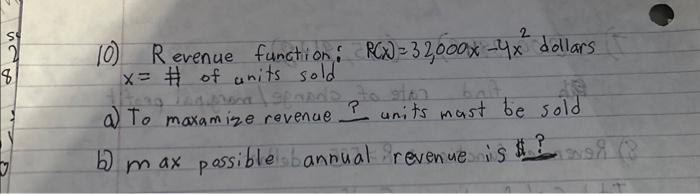 10) Revenue function: R(x) = 32,000x - 4x² dollars
x = # of units sold
a) To maxamize revenue ? units must be sold
b) max possible annual revenue is $ ?